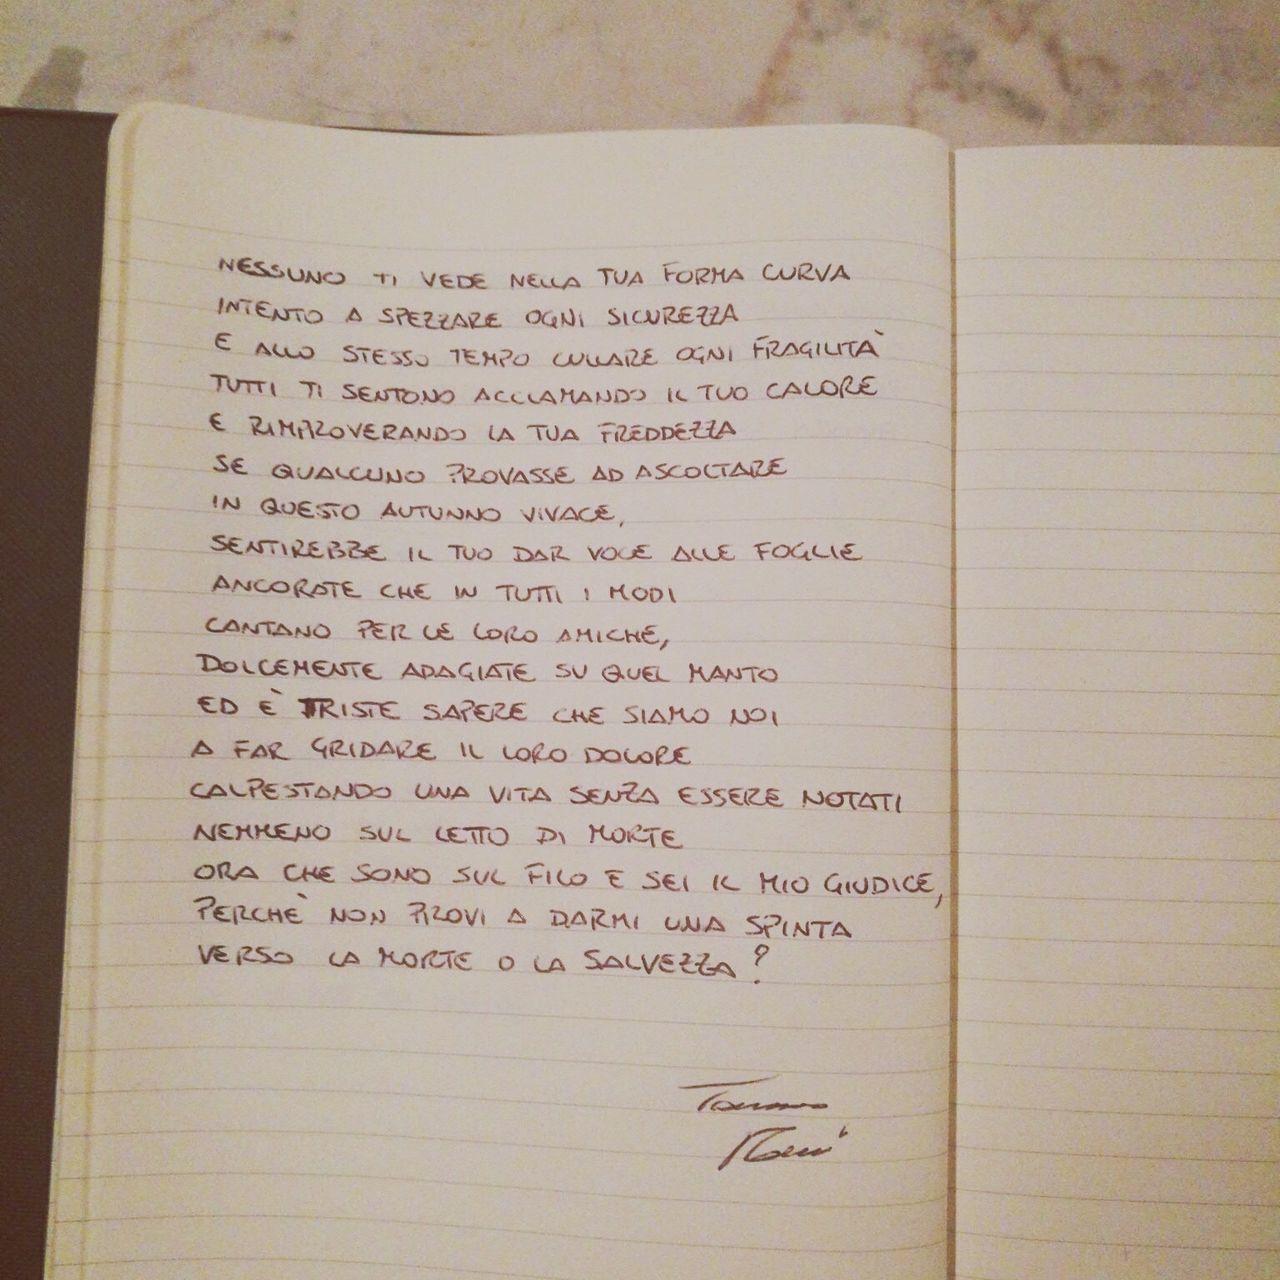 NESSUNO TI VEDE NELLA TUA FORMA CURVA
INTENTO A SPEZZARE OGNI SICUREZZA
E ALLO STESSO TEMPO CULLARE OGNI FRAGILITÀ
TUTTI TI SENTONO ACCLAMANDO IL TUO CALORE
E RIMPROVERANDO LA TUA FREDDEZZA
SE QUALCUNO PROVASSE AD ASCOLTARE
IN QUESTO AUTUNNO VIVACE,
SENTIREBBE IL TUO DAR VOCE ALLE FOGLIE
ANCORATE CHE IN TUTTI I MODI
CANTANO PER LE LORO AMICHE,
DOLCEMENTE ADAGIATE SU QUEL MANTO
ED È TRISTE SAPERE CHE SIAMO NOI
A FAR GRIDARE IL LORO DOLORE
CALPESTANDO UNA VITA SENZA ESSERE NOTATI
NEMMENO SUL LETTO DI MORTE
ORA CHE SONO SUL FILO E SEI IL MIO GIUDICE,
PERCHÈ NON PROVI A DARMI UNA SPINTA
VERSO LA MORTE O LA SALVEZZA?